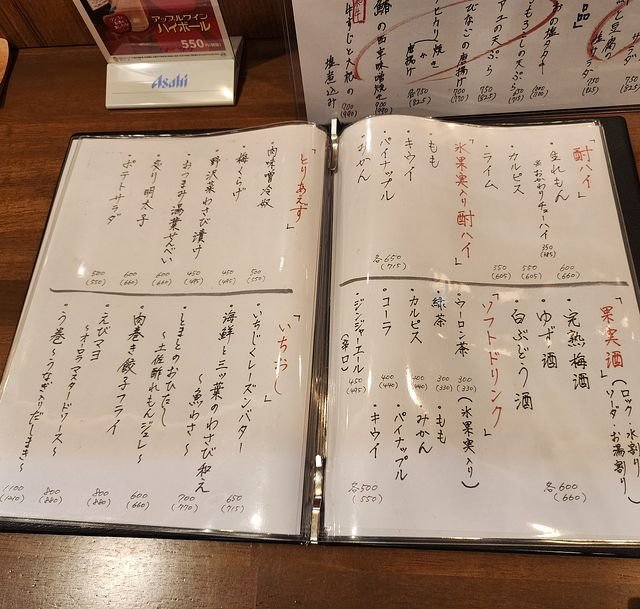 アップルワイン
ハイボール
550円
Asahi
ひなごの唐揚げ
750
(825)
700
(770)
の天ぷら
塩煮込み
「酎ハイ」
・生れもん
600
(660)
※おかわりチューハイ 350
(385)
・カルピス
550
(605)
・ライム
550
(605)
「氷果実入り酎ハイ」
・もも
・キウイ
・パイナップル
・みかん
各650
(715)
「果実酒」
(ロック 水割り
ソーダ・お湯割り)
・完熟梅酒
・ゆず酒
・白ぶどう酒
各600
(660)
「ソフトドリンク」
・ウーロン茶
300
(330)
・緑茶
300
(330)
・カルピス
400
(440)
・コーラ
400
(440)
・ジンジャーエール
(辛口)
450
(495)
(氷果実入り)
・もも
・みかん
・パイナップル
・キウイ
各500
(550)
「とりあえず」
・肉味噌冷奴
500
(550)
・梅くらげ
450
(495)
・野沢菜わさび漬け
450
(495)
・おつまみ湯葉せんべい
600
(660)
・炙り明太子
600
(660)
・ポテトサラダ
500
(550)
「いちおし」
・いちじくレーズンバター
650
(715)
・海鮮と三ッ葉のわさび和え
〜魚わさ〜
700
(770)
・とまとのおひたし
〜土佐酢れもんジュレ〜
600
(660)
・肉巻き餃子フライ
800
(880)
・えびマヨ
〜オーロラマスタードソース〜
800
(880)
・う巻き
〜うなぎ入りだしまき〜
1100
(1210)